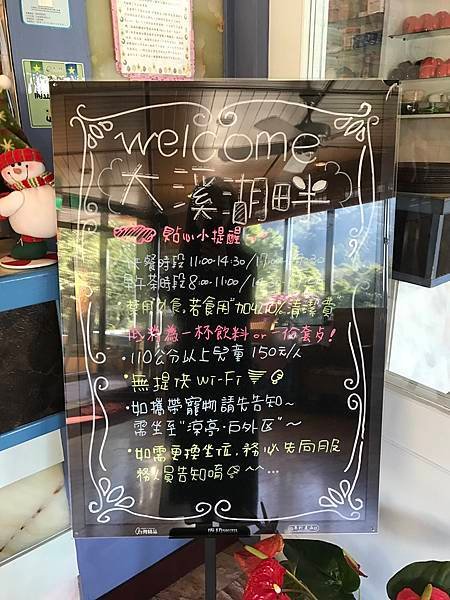 welcome
大溪湖畔
貼心小提醒
餐時段 11:00-14:30/17:00
午茶時段 8:00-11:00/14
禁用外食,若食用"加收10%清潔費"
低消為一杯飲料or一份套歺!
•110公分以上兒童 150元/人
•無提供Wi-Fi
•如攜帶寵物請先告知~
需坐至"涼亭.戶外区"~
•如需更換坐位,務必先向服
務人員告知唷 ^^...